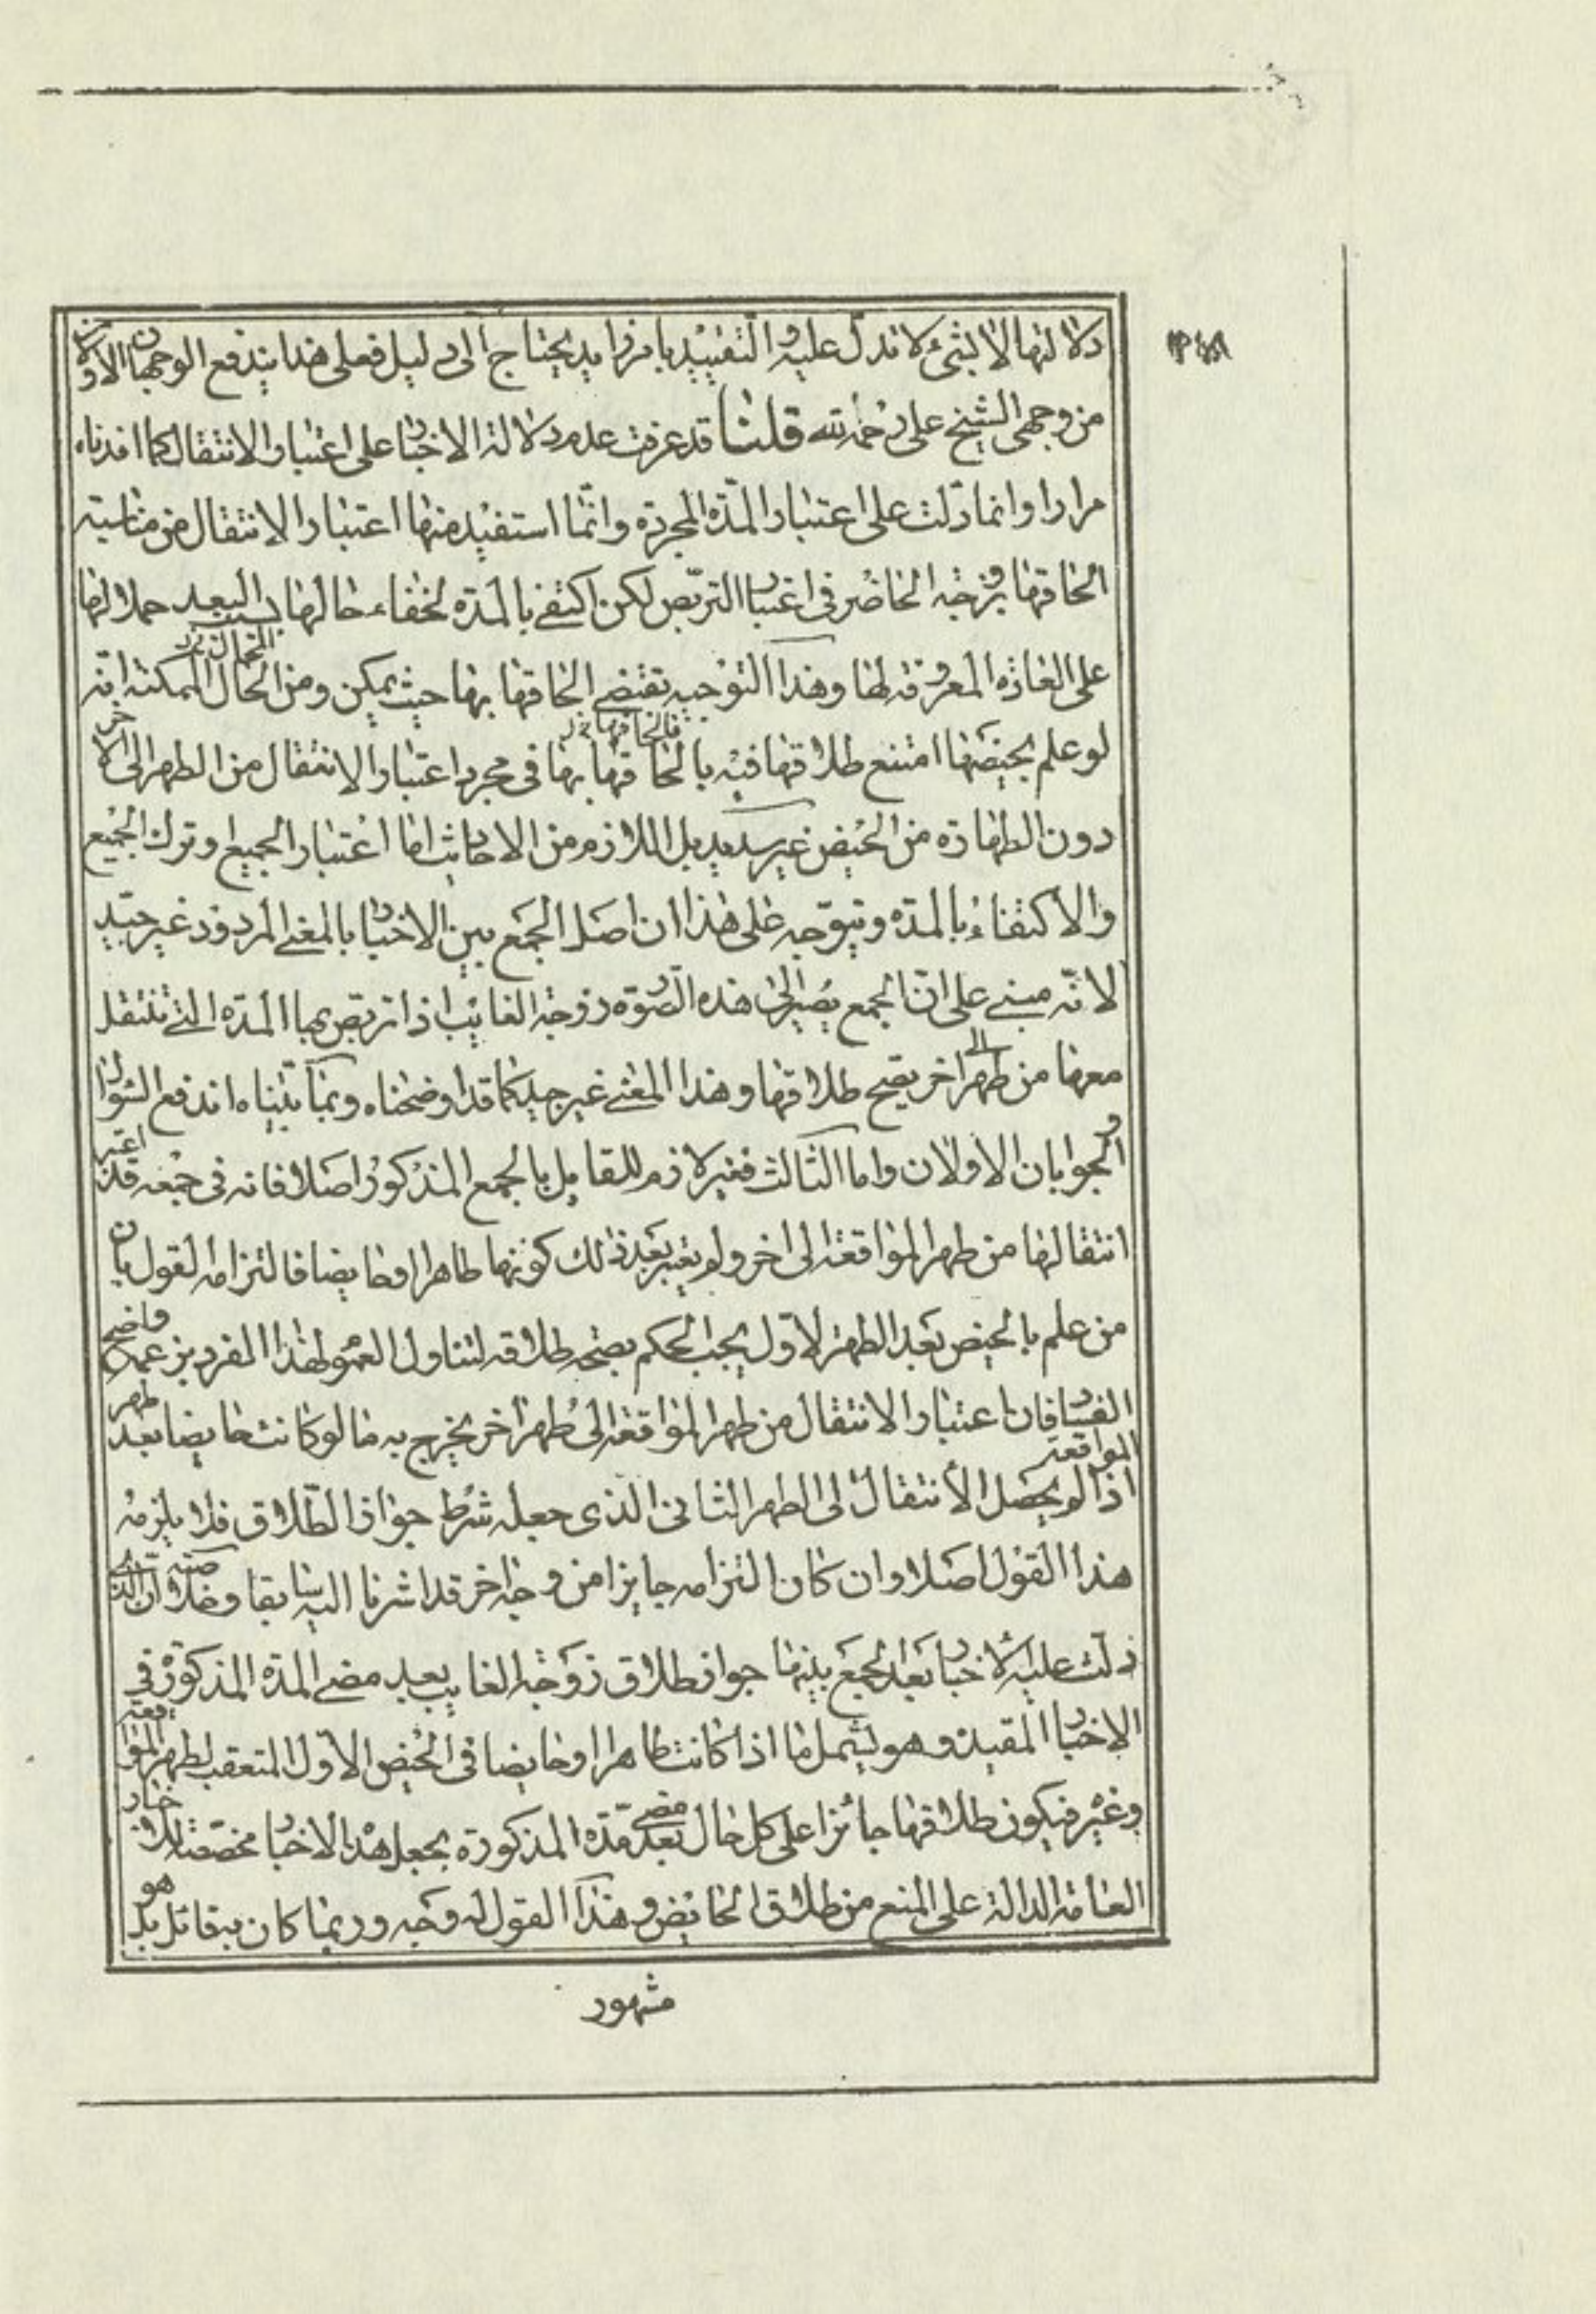 دلالتها لا لشيء لا تدل عليه والتقييد بامر زايد يحتاج الى دليل فعلى هذا يندفع الوجهان الاولان
من وجهى الشيخ على رحمه الله قلنا قد عرفت عدم دلالة الاخبار على اعتبار الانتقال كما افدناه
مرارا وانما دلت على اعتبار المدّة المجردة وانّما استفيد منها اعتبار الانتقال من مناسبة
الحاقها بزوجة الحاضر فى اعتبار التربّص لكن اكتفى بالمدّة لخفاء حالها بسبب البعد حملا لها
على العادة المعروفة لها وهذا التوجيه تقتضى الحاقها بها حيث يمكن ومن الحال الممكنة انّه
لو علم بحيضها امتنع طلاقها فيه بالحاقها بها فى مجرد اعتبار الانتقال من الطهر الى الاخر
دون الطهارة من الحيض غير سديد بل اللازم من الاحاديث اما اعتبار الجميع او ترك الجميع
والاكتفاء بالمدّة ويتوّجه على هذا ان اصل الجمع بين الاخبار بالمعنى المردود غير جيّد
لانّه مبنى على انّ الجمع يصير الى هذه الصّورة زوجة الغايب اذا تربّص بها المدّة التى تنتقل
معها من طهر الى اخر يصح طلاقها وهذا المعنى غير جيد كما قد اوضحناه وبما بيّناه اندفع السّؤال
والجوابان الاولان واما الثالث فغير لازم للقايل بالجمع المذكور اصلا فانه فى جمعه قد اعتبر
انتقالها من طهر المواقعة الى اخر ولم يعتبر بعد ذلك كونها طاهرا او حايضا فالتزامه القول بان
من علم بالحيض بعد الطهر الاوّل يجب الحكم بصحّة طلاقه لتناول العموم لهذا الفرد بزعمه واضح
الفساد فان اعتبار الانتقال من طهر المواقعة الى طهر اخر يخرج به ما لو كانت حايضا بعد طهر المواقعة
اذ لم يحصل الانتقال الى الطهر الثانى الذى جعله شرط جواز الطّلاق فلا يلزمه
هذا القول اصلا وان كان التزامه جايزا من وجه اخر قد اشرنا اليه سابقا وخلاصته ان الذى
دلت عليه الاخبار بعد الجمع بينها جواز طلاق زوجة الغايب بعد مضى المدّة المذكورة فى
الاخبار المقيدة وهو يشمل ما اذا كانت طاهرا او حايضا فى الحيض الاوّل المتعقب لطهر المواقعة
وغيره فيكون طلاقها جائزا على كل حال بعد مضى مدّه المذكورة بجعل هذه الاخبار مخصّصة للاخبار
العامة الدالة على المنع من طلاق الحايض وهذا القول له وجه وربما كان به قائل بل هو
مشهور